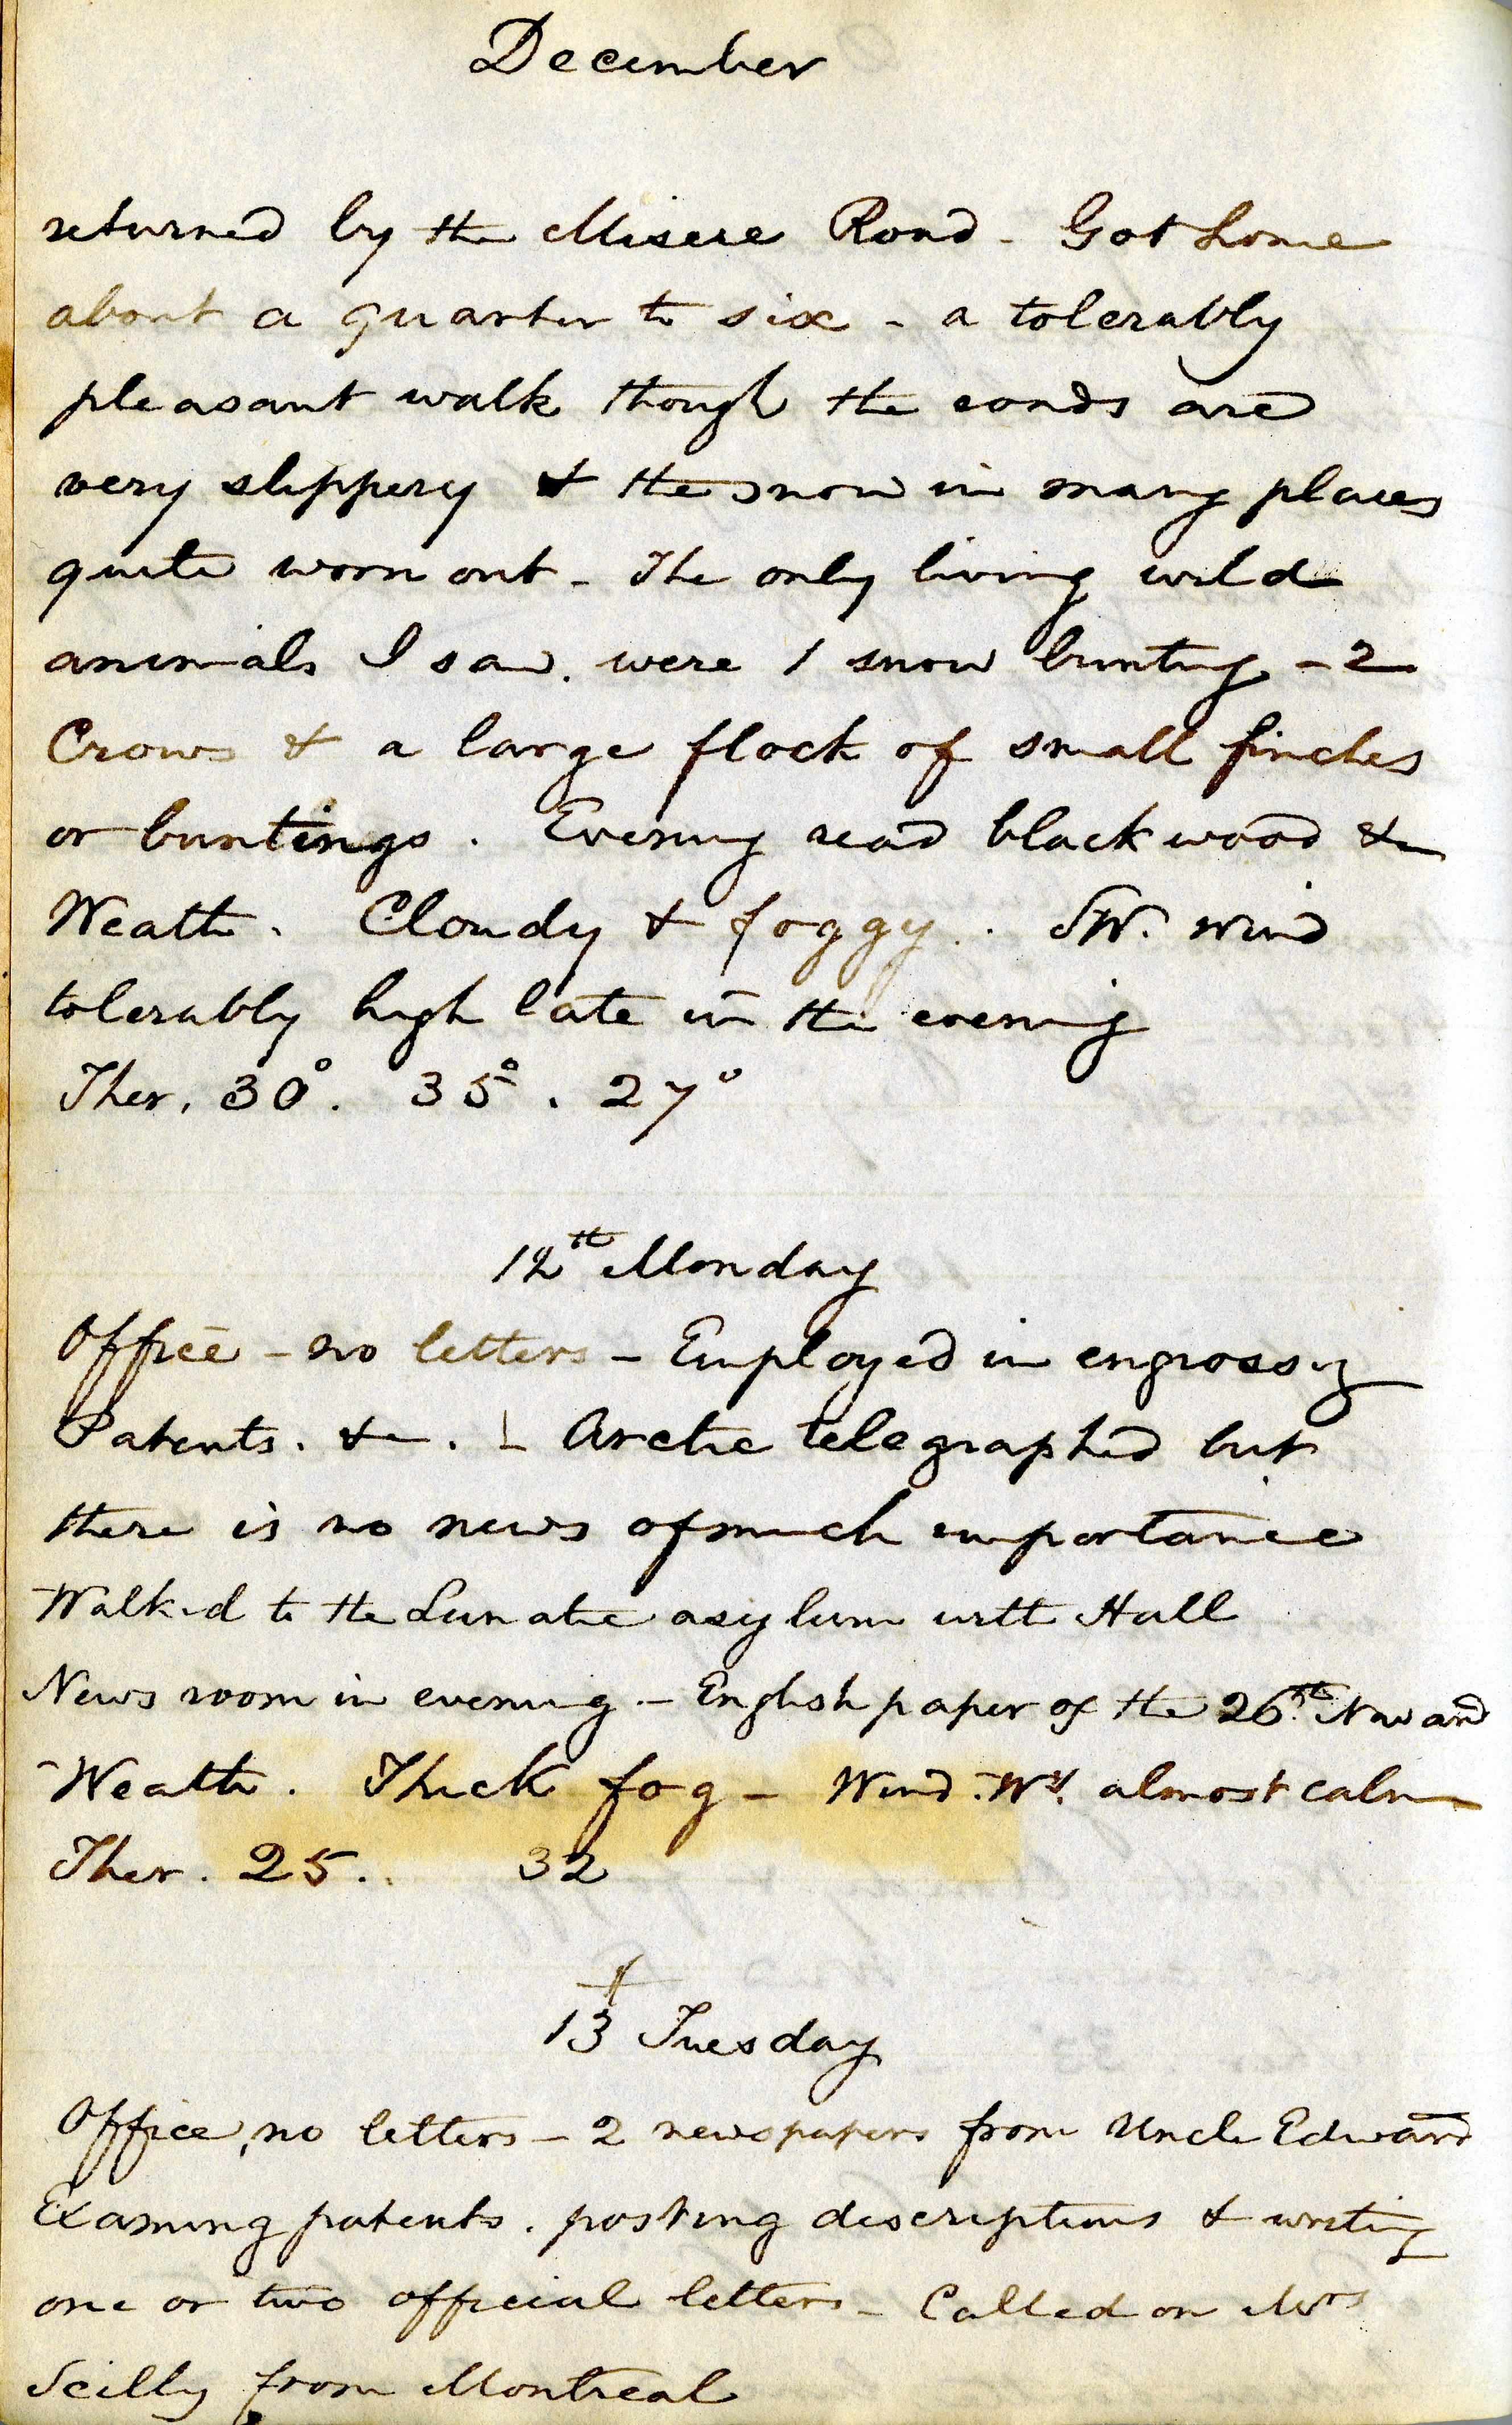 December
returned by the Misere Road - Got home
about a quarter to six - a tolerably
pleasant walk though the roads are
very slippery & the snow in many places
quite worn out - The only living wild
animals I saw. were 1 snow bunting - 2
Crows & a large flock of small finches
or buntings. Evening read blackwood &c
Weath. Cloudy & foggy. SW. wind
tolerably high late in the evening
Ther. 30°. 35°. 27°
12th Monday
Office - no letters - Employed in engrossing
Patents. &c. Arctic telegraphed but
there is no news of much importance
Walked to the Lunatic asylum with Hall
News room in evening - English paper of the 26th Nov and
Weath. Thick fog - Wind. Wy. almost calm
Ther. 25.. 32
13th Tuesday
Office, no letters - 2 newspapers from Uncle Edward
Examing patents. posting descriptions & writing
one or two official letters - Called on Mrs
Scilly from Montreal